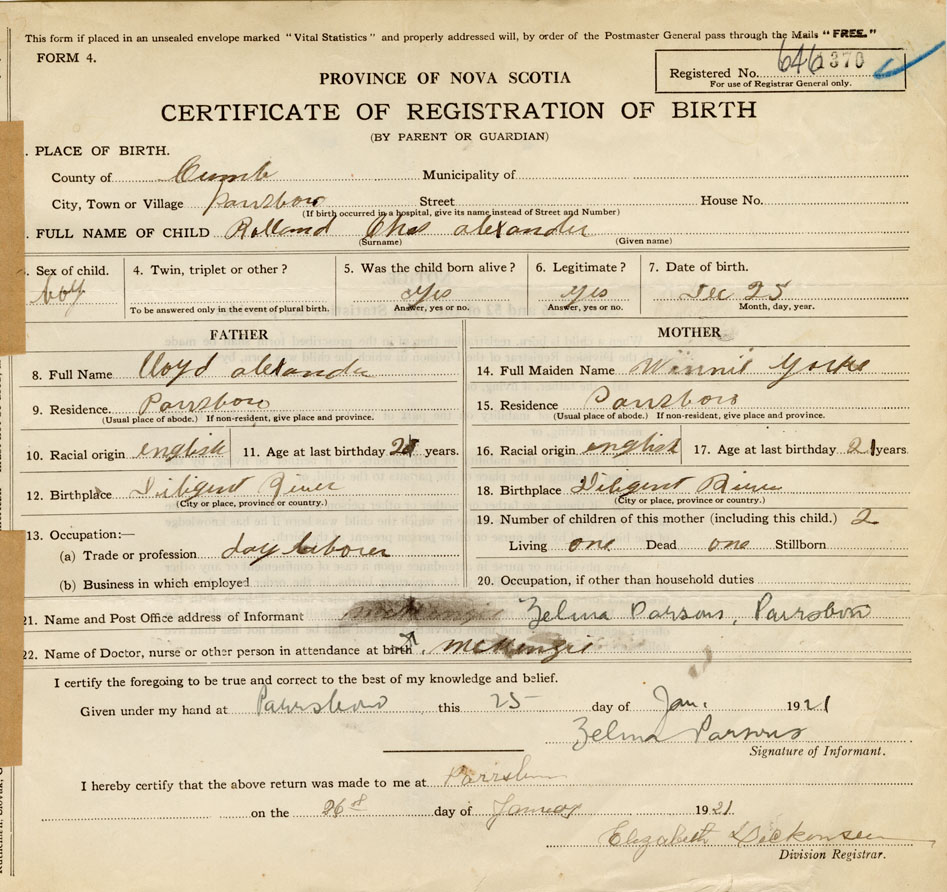 This form if placed in an unsealed envelope marked "Vital Statistics" and properly addressed will, by order of the Postmaster General pass through the Mails "FREE."
FORM 4.
Registered No. 6461370
For use of Registrar General only.
PROVINCE OF NOVA SCOTIA
CERTIFICATE OF REGISTRATION OF BIRTH
(BY PARENT OR GUARDIAN)
. PLACE OF BIRTH.
County of Cumb Municipality of
City, Town or Village Parrsboro Street House No.
(If birth occurred in a hospital, give its name instead of Street and Number)
. FULL NAME OF CHILD Rolland Chas alexander
(Surname) (Given name)
. Sex of child. 4. Twin, triplet or other? 5. Was the child born alive? 6. Legitimate? 7. Date of birth.
boy yes yes Dec 25
To be answered only in the event of plural birth. Answer, yes or no. Answer, yes or no. Month, day, year.
FATHER MOTHER
8. Full Name Lloyd alexander 14. Full Maiden Name Winnie Yorke
9. Residence. Parrsboro 15. Residence Parrsboro
(Usual place of abode.) If non-resident, give place and province. (Usual place of abode.) If non-resident, give place and province.
10. Racial origin english 11. Age at last birthday years. 16. Racial origin english 17. Age at last birthday 21 years.
12. Birthplace Diligent River 18. Birthplace Diligent River
(City or place, province or country.) (City or place, province or country.)
13. Occupation:— 19. Number of children of this mother (including this child.) 2
(a) Trade or profession day laborer Living one Dead one Stillborn
(b) Business in which employed 20. Occupation, if other than household duties
21. Name and Post Office address of Informant McKenzie Zelma Parsons, Parrsboro
22. Name of Doctor, nurse or other person in attendance at birth. McKenzie
I certify the foregoing to be true and correct to the best of my knowledge and belief.
Given under my hand at Parrsboro this 25 day of Jan. 1921
Zelma Parsons
Signature of Informant.
I hereby certify that the above return was made to me at Parrsboro
on the 26th day of January 1921
Elizabeth Dickinson
Division Registrar.